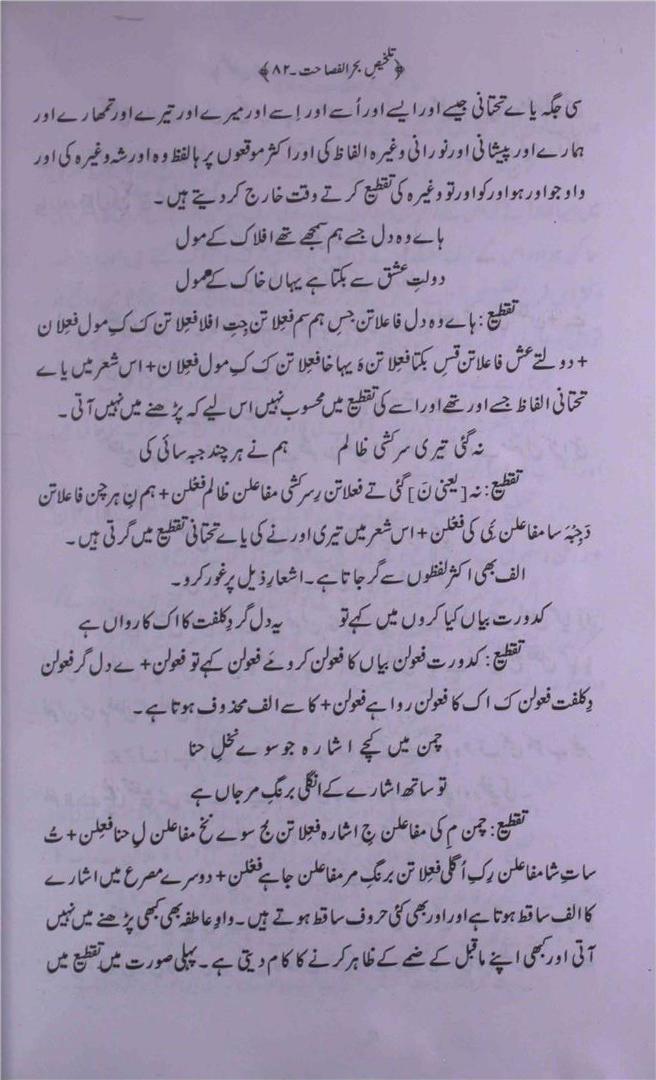 ﴿تلخیصِ بحر الفصاحت ۔ ۸۲﴾
سی جگہ یاے تحتانی جیسے اور ایسے اور اُسے اور اِسے اور میرے اور تیرے اور تمھارے اور
ہمارے اور پیشانی اور نورانی وغیرہ الفاظ کی اور اکثر موقعوں پر ہا لفظ وہ اور شہ وغیرہ کی اور
واو جو اور ہو اور کو اور تو وغیرہ کی تقطیع کرتے وقت خارج کر دیتے ہیں۔
ہاے وہ دل جسے ہم سمجھے تھے افلاک کے مول
دولتِ عشق سے بکتا ہے یہاں خاک کے مول
تقطیع: ہاے وہ دل فاعلاتن جسِ ہم سم فعلاتن جِتِ افلا فعلاتن ک کِ مول فعلان
+ دولتے عش فاعلاتن قسِ بکتا فعلاتن ہَ یہا خا فعلاتن ک کِ مول فعلان + اس شعر میں یاے
تحتانی الفاظ جسے اور تھے اور اسے کی تقطیع میں محسوب نہیں اس لیے کہ پڑھنے میں نہیں آتی۔
نہ گئی تیری سرکشی ظالم ہم نے ہر چند جبہ سائی کی
تقطیع: نہ [یعنی نَ] گئی تے فعلاتن رِ سرکشی مفاعلن ظالم فعلن + ہم نِ ہر چن فاعلاتن
دَ جِبْہَ سا مفاعلن ئی کی فعلن + اس شعر میں تیری اور نے کی یاے تحتانی تقطیع میں گرتی ہیں۔
الف بھی اکثر لفظوں سے گر جاتا ہے۔ اشعارِ ذیل پر غور کرو۔
کدورت بیاں کیا کروں میں کہے تو یہ دل گردِ کلفت کا اک کارواں ہے
تقطیع: کدورت فعولن بیاں کا فعولن کروئے فعولن کہے تو فعولن + ے دل گر فعولن
دِ کلفت فعولن ک اک کا فعولن روا ہے فعولن + کا سے الف محذوف ہوتا ہے۔
چمن میں کیجے اشارہ جو سوے نخلِ حنا
تو ساتھ اشارے کے انگلی برنگِ مرجاں ہے
تقطیع: چمن مِ کی مفاعلن جِ اشارہ فعلاتن جُ سوے نخ مفاعلن لِ حنا فعِلن + تُ
سات شا مفاعلن رِ کِ اُگلی فعلاتن برنگِ مر مفاعلن جا ہے فعْلن + دوسرے مصرع میں اشارے
کا الف ساقط ہوتا ہے اور اور بھی کئی حروف ساقط ہوتے ہیں۔ واوِ عاطفہ بھی کبھی پڑھنے میں نہیں
آتی اور کبھی اپنے ماقبل کے ضمے کے ظاہر کرنے کا کام دیتی ہے۔ پہلی صورت میں تقطیع میں